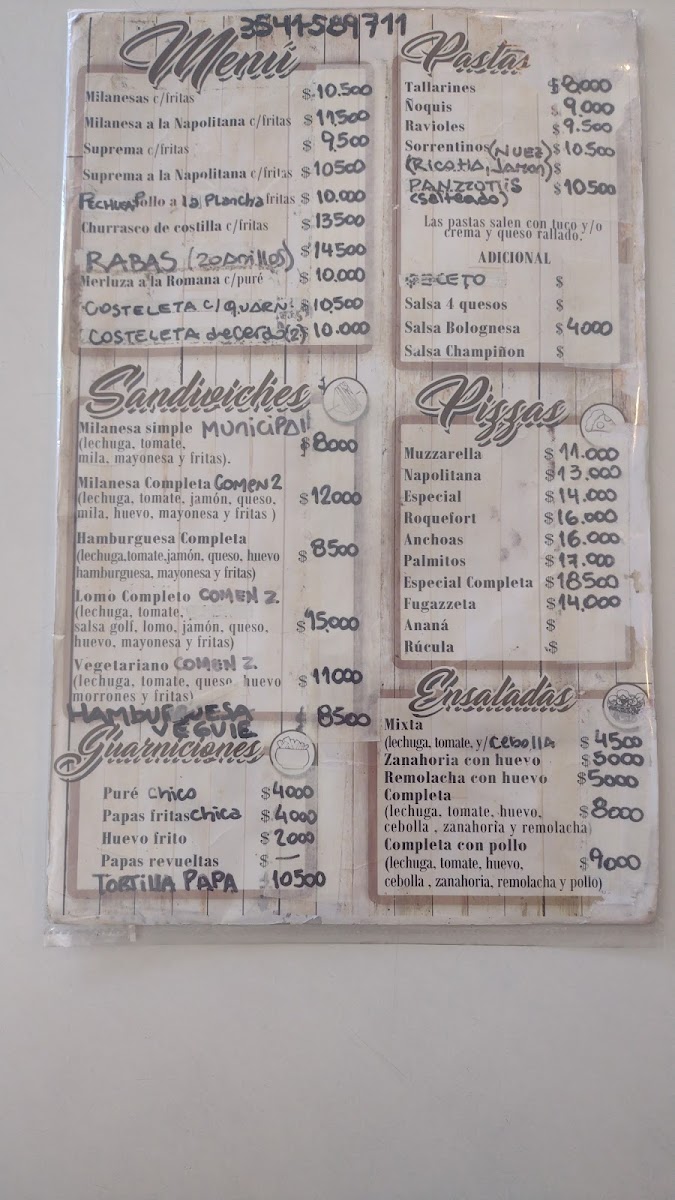 3541-589711
Menú
Milanesas c/fritas $ 10.500
Milanesa a la Napolitana c/fritas $ 11500
Suprema c/fritas $ 9500
Suprema a la Napolitana c/fritas $ 10500
Pechuga Pollo a la Plancha fritas $ 10.000
Churrasco de costilla c/fritas $ 13500
RABAS (20 Anillos) $ 14500
Merluza a la Romana c/puré $ 10.000
COSTELETA C/GUARN: $ 10.500
COSTELETA de Cerdo (2) $ 10.000
Sandwiches
Milanesa simple MUNICIPAL!!
(lechuga, tomate, $ 8000
mila, mayonesa y fritas).
Milanesa Completa COMEN 2
(lechuga, tomate, jamón, queso, $ 12000
mila, huevo, mayonesa y fritas )
Hamburguesa Completa
(lechuga,tomate,jamón, queso, huevo $ 8500
hamburguesa, mayonesa y fritas)
Lomo Completo COMEN 2.
(lechuga, tomate,
salsa golf, lomo, jamón, queso, $ 15000
huevo, mayonesa y fritas)
Vegetariano COMEN 2.
(lechuga, tomate, queso, huevo $ 11000
morrones y fritas)
HAMBURGUESA $ 8500
VEGGIE
Guarniciones
Puré CHICO $ 4000
Papas fritas CHICA $ 4000
Huevo frito $ 2000
Papas revueltas $ —
TORTILLA PAPA 10500
Pastas
Tallarines $ 8000
Ñoquis $ 9.000
Ravioles $ 9.500
Sorrentinos (NUEZ) $ 10.500
(RICOTTA, JAMON) $
PANZZOTTIS $ 10500
(salteado)
Las pastas salen con tuco y/o
crema y queso rallado.
ADICIONAL
PECETO $
Salsa 4 quesos $
Salsa Bolognesa $ 4000
Salsa Champiñon $
Pizzas
Muzzarella $ 11.000
Napolitana $ 13.000
Especial $ 14.000
Roquefort $ 16.000
Anchoas $ 16.000
Palmitos $ 17.000
Especial Completa $ 18500
Fugazzeta $ 14.000
Ananá $
Rúcula $
Ensaladas
Mixta
(lechuga, tomate, y/ CEBOLLA $ 4500
Zanahoria con huevo $ 5000
Remolacha con huevo $ 5000
Completa
(lechuga, tomate, huevo, $ 8000
cebolla , zanahoria y remolacha)
Completa con pollo
(lechuga, tomate, huevo, $ 9000
cebolla , zanahoria, remolacha y pollo)